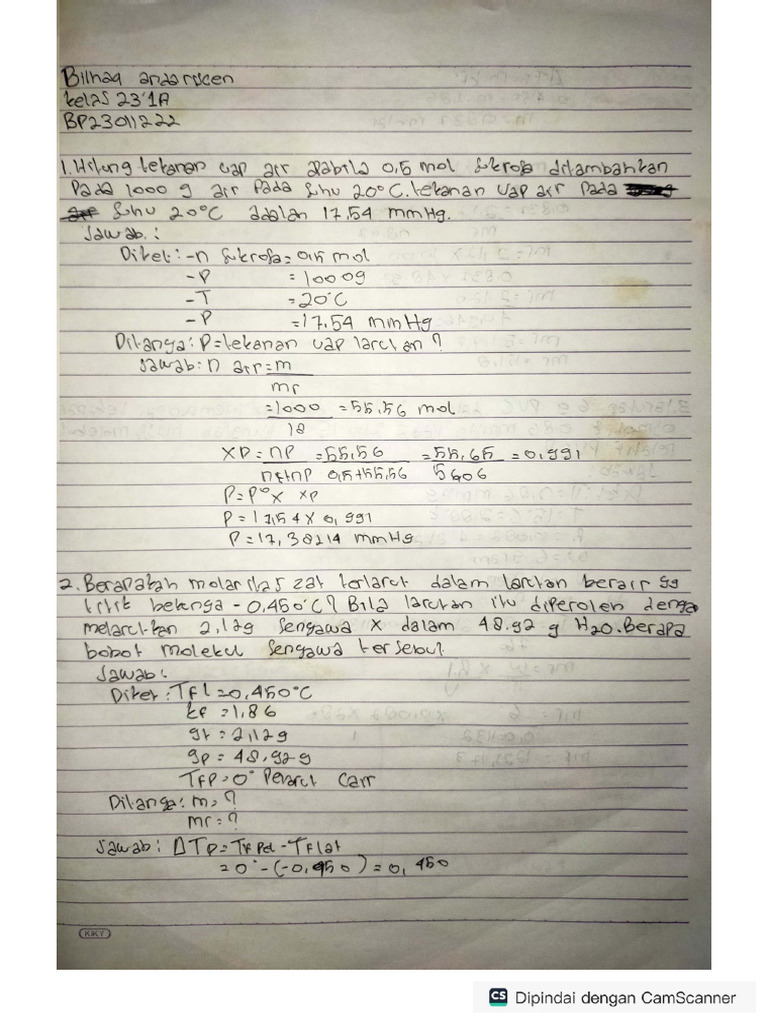 Bilhaq andarusen
kelas 23'1A
BP23011222
1. Hitung tekanan uap air apabila 0,5 mol Sukrosa ditambahkan
Pada 1000 g air Pada Suhu 20°C. tekanan uap air Pada
Suhu 20°C adalah 17.54 mmHg.
Jawab :
Diket : - n Sukrosa = 0,5 mol
- P = 1000g
- T = 20°C
- P = 17,54 mmHg
Ditanya : P = tekanan uap larutan ?
Jawab : n air = m
mr
= 1000 = 55,56 mol
18
XP = nP = 55,56 = 55,65 = 0,991
nt+nP 0,5+55,56 5606
P = P° x xp
P = 17,54 x 0,991
P = 17,38214 mmHg
2. Berapakah molaritas zat terlarut dalam larutan berair yg
titik bekunya - 0,450°C ? Bila larutan itu diperoleh denga
melarutkan 2,12g Senyawa X dalam 48.92 g H2O. Berapa
bobot molekul Senyawa tersebut.
Jawab :
Diket : Tfl = 0,450°C
kf = 1,86
gt = 2,12g
gp = 48,92g
TFP = 0° Pelarut Cair
Ditanya : m = ?
mr = ?
Jawab : ΔTP = TF Pel - TF lat
= 0° - (-0,450) = 0,450
KIKY
CS Dipindai dengan CamScanner